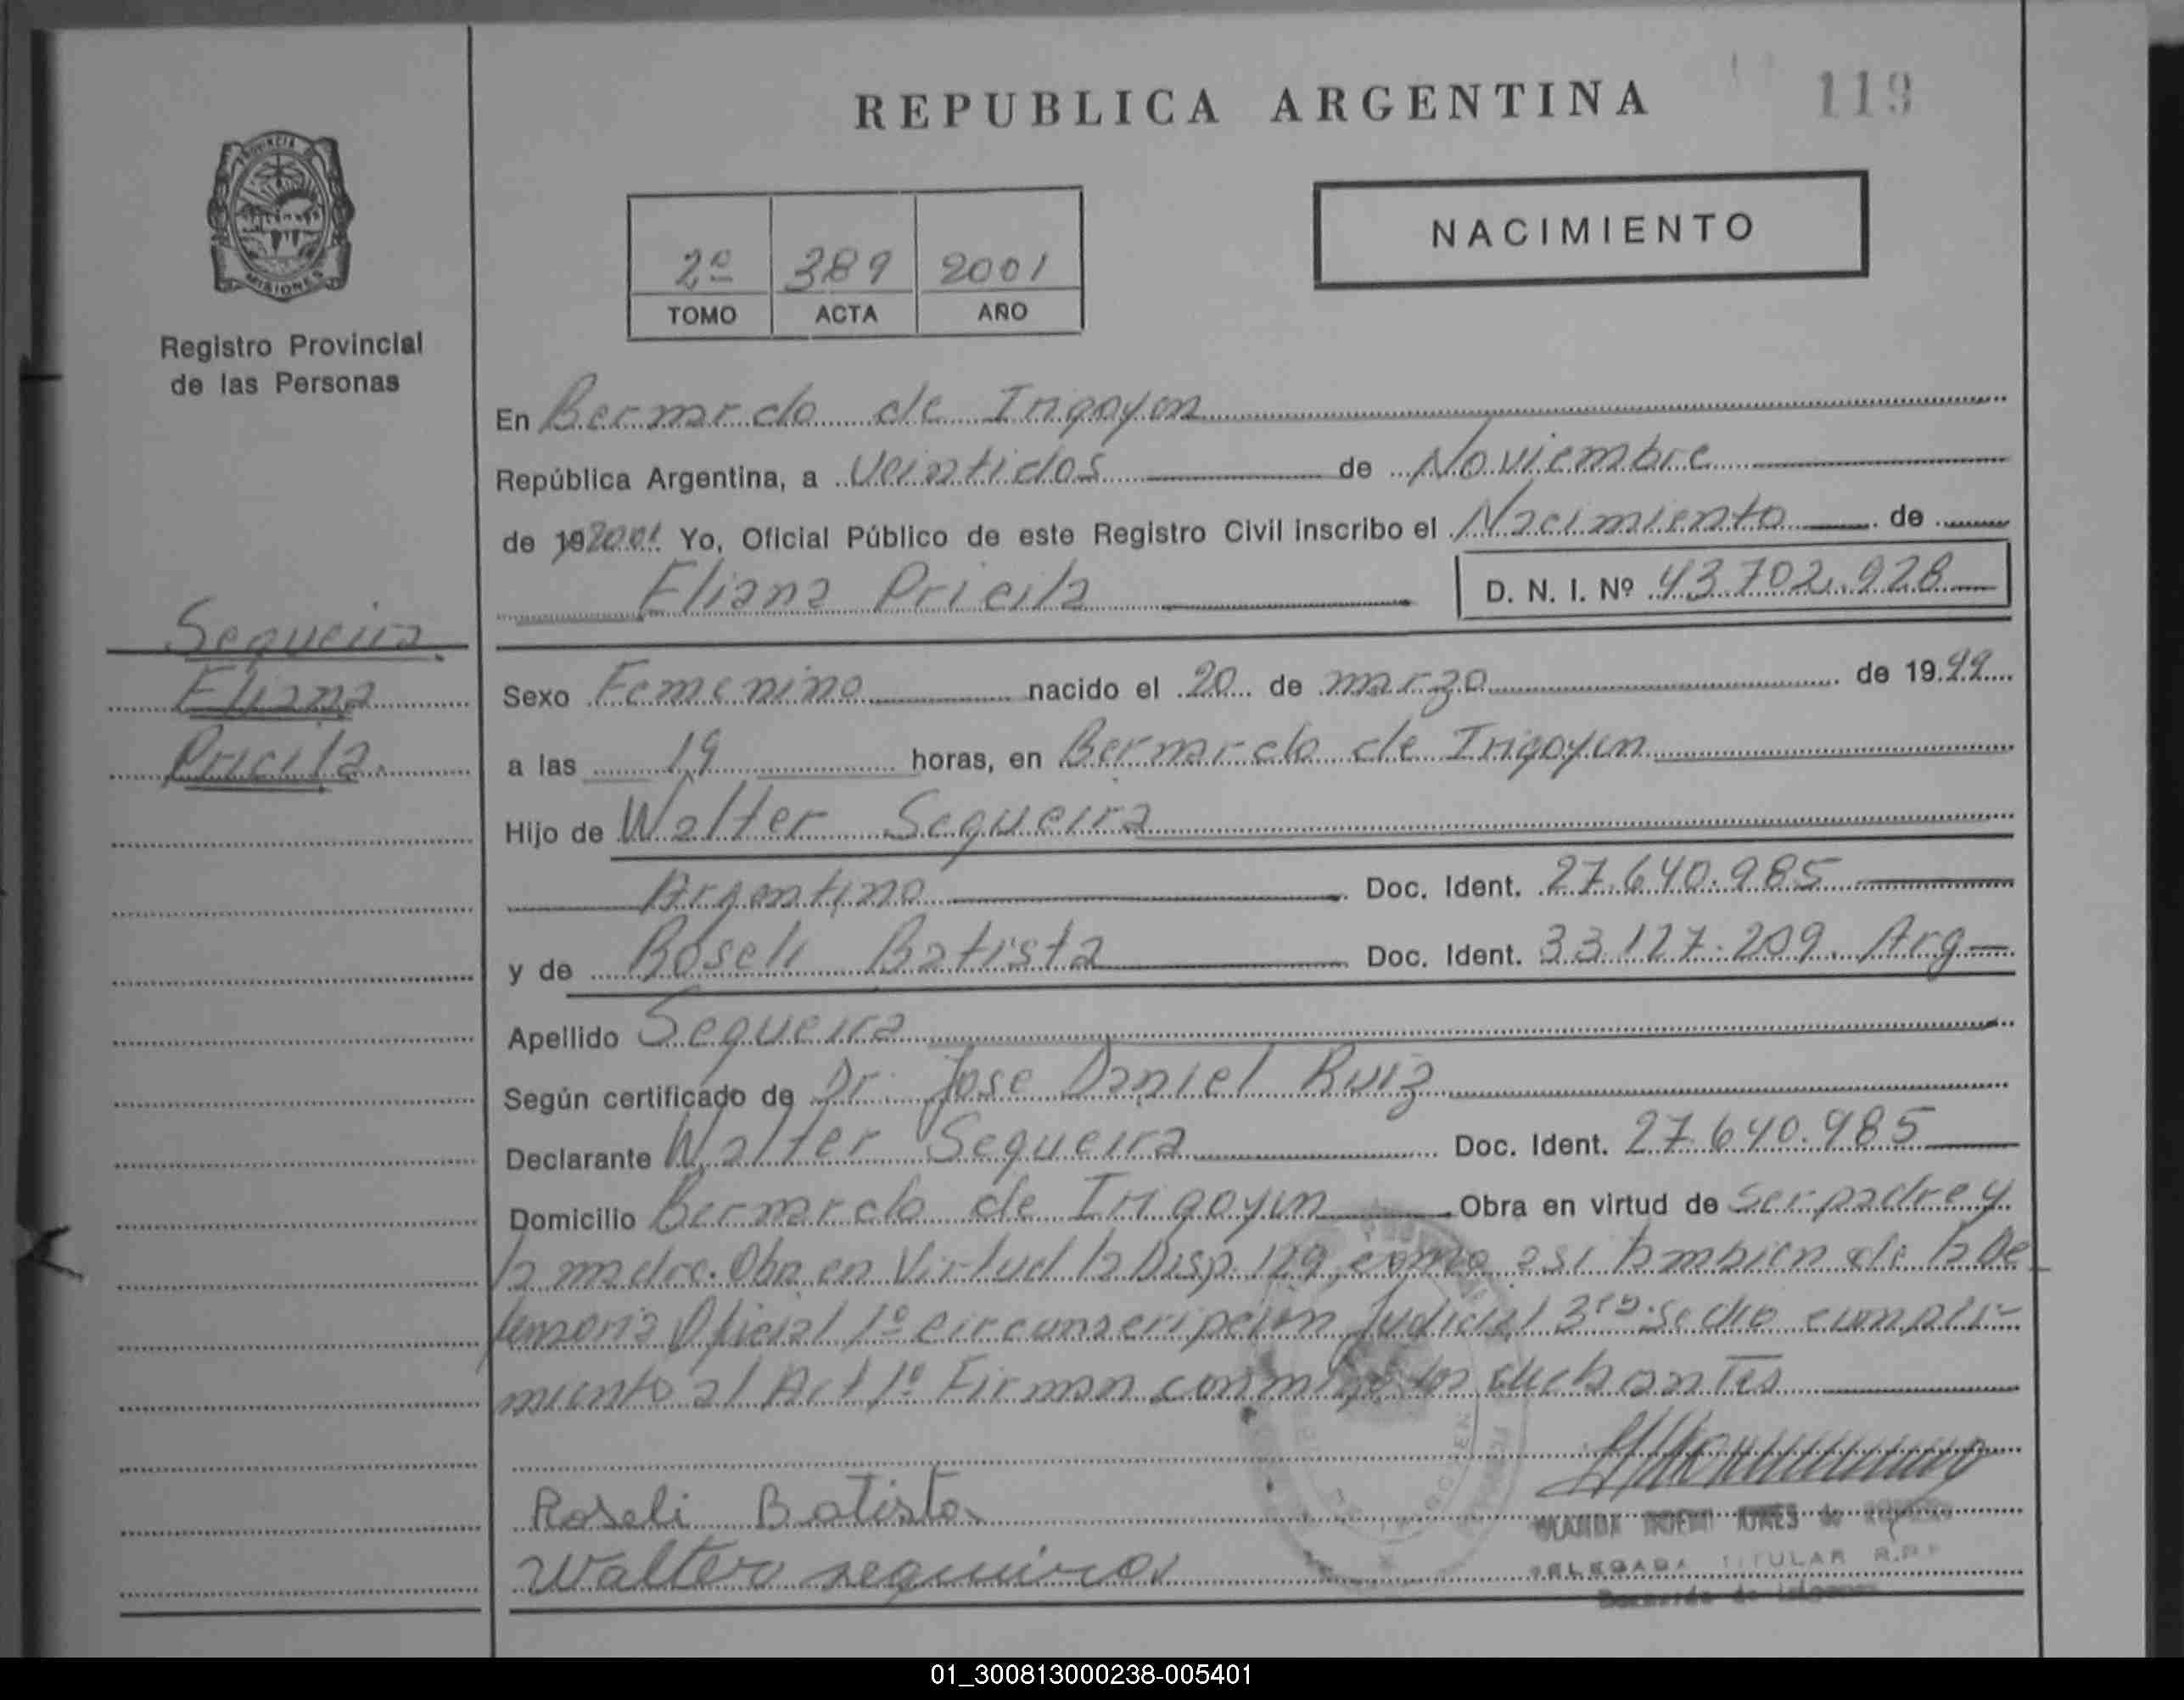 REPUBLICA ARGENTINA
119
PROVINCIA DE
MISIONES
Registro Provincial
de las Personas
2º 389 2001
TOMO ACTA AÑO
NACIMIENTO
En Bernardo de Irigoyen
República Argentina, a Veintidos de Noviembre
de 192001 Yo, Oficial Público de este Registro Civil inscribo el Nacimiento de
Eliana Pricila D. N. I. Nº 43.702.928
Sequeira
Eliana
Pricila
Sexo Femenino nacido el 20 de marzo de 1999
a las 19 horas, en Bernardo de Irigoyen
Hijo de Walter Sequeira
Argentino Doc. Ident. 27.640.985
y de Roseli Batista Doc. Ident. 33.127.209 Arg
Apellido Sequeira
Según certificado de Dr. Jose Daniel Ruiz
Declarante Walter Sequeira Doc. Ident. 27.640.985
Domicilio Bernardo de Irigoyen Obra en virtud de ser padre y
la madre. Obra en Virtud la Disp. 129, como asi tambien de la De
fensoria Oficial 1º circunscripcion Judicial 3ra. Se dio cumpli-
miento al Art 1º Firman conmigo los
Roseli Batista
Walter sequeira
DELEGADA TITULAR R.P.P
Bernardo de Irigoyen
01_300813000238-005401